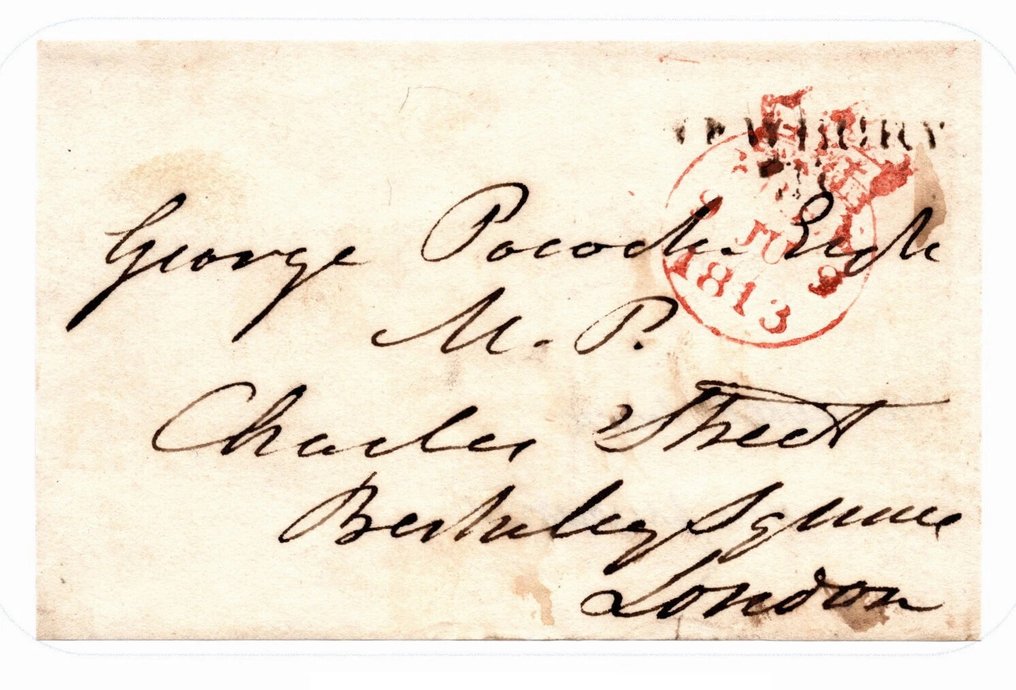 NEWBURY
8 JU 9
1813
George Pocock Esqr
M. P.
Charles Street
Berkeley Square
London